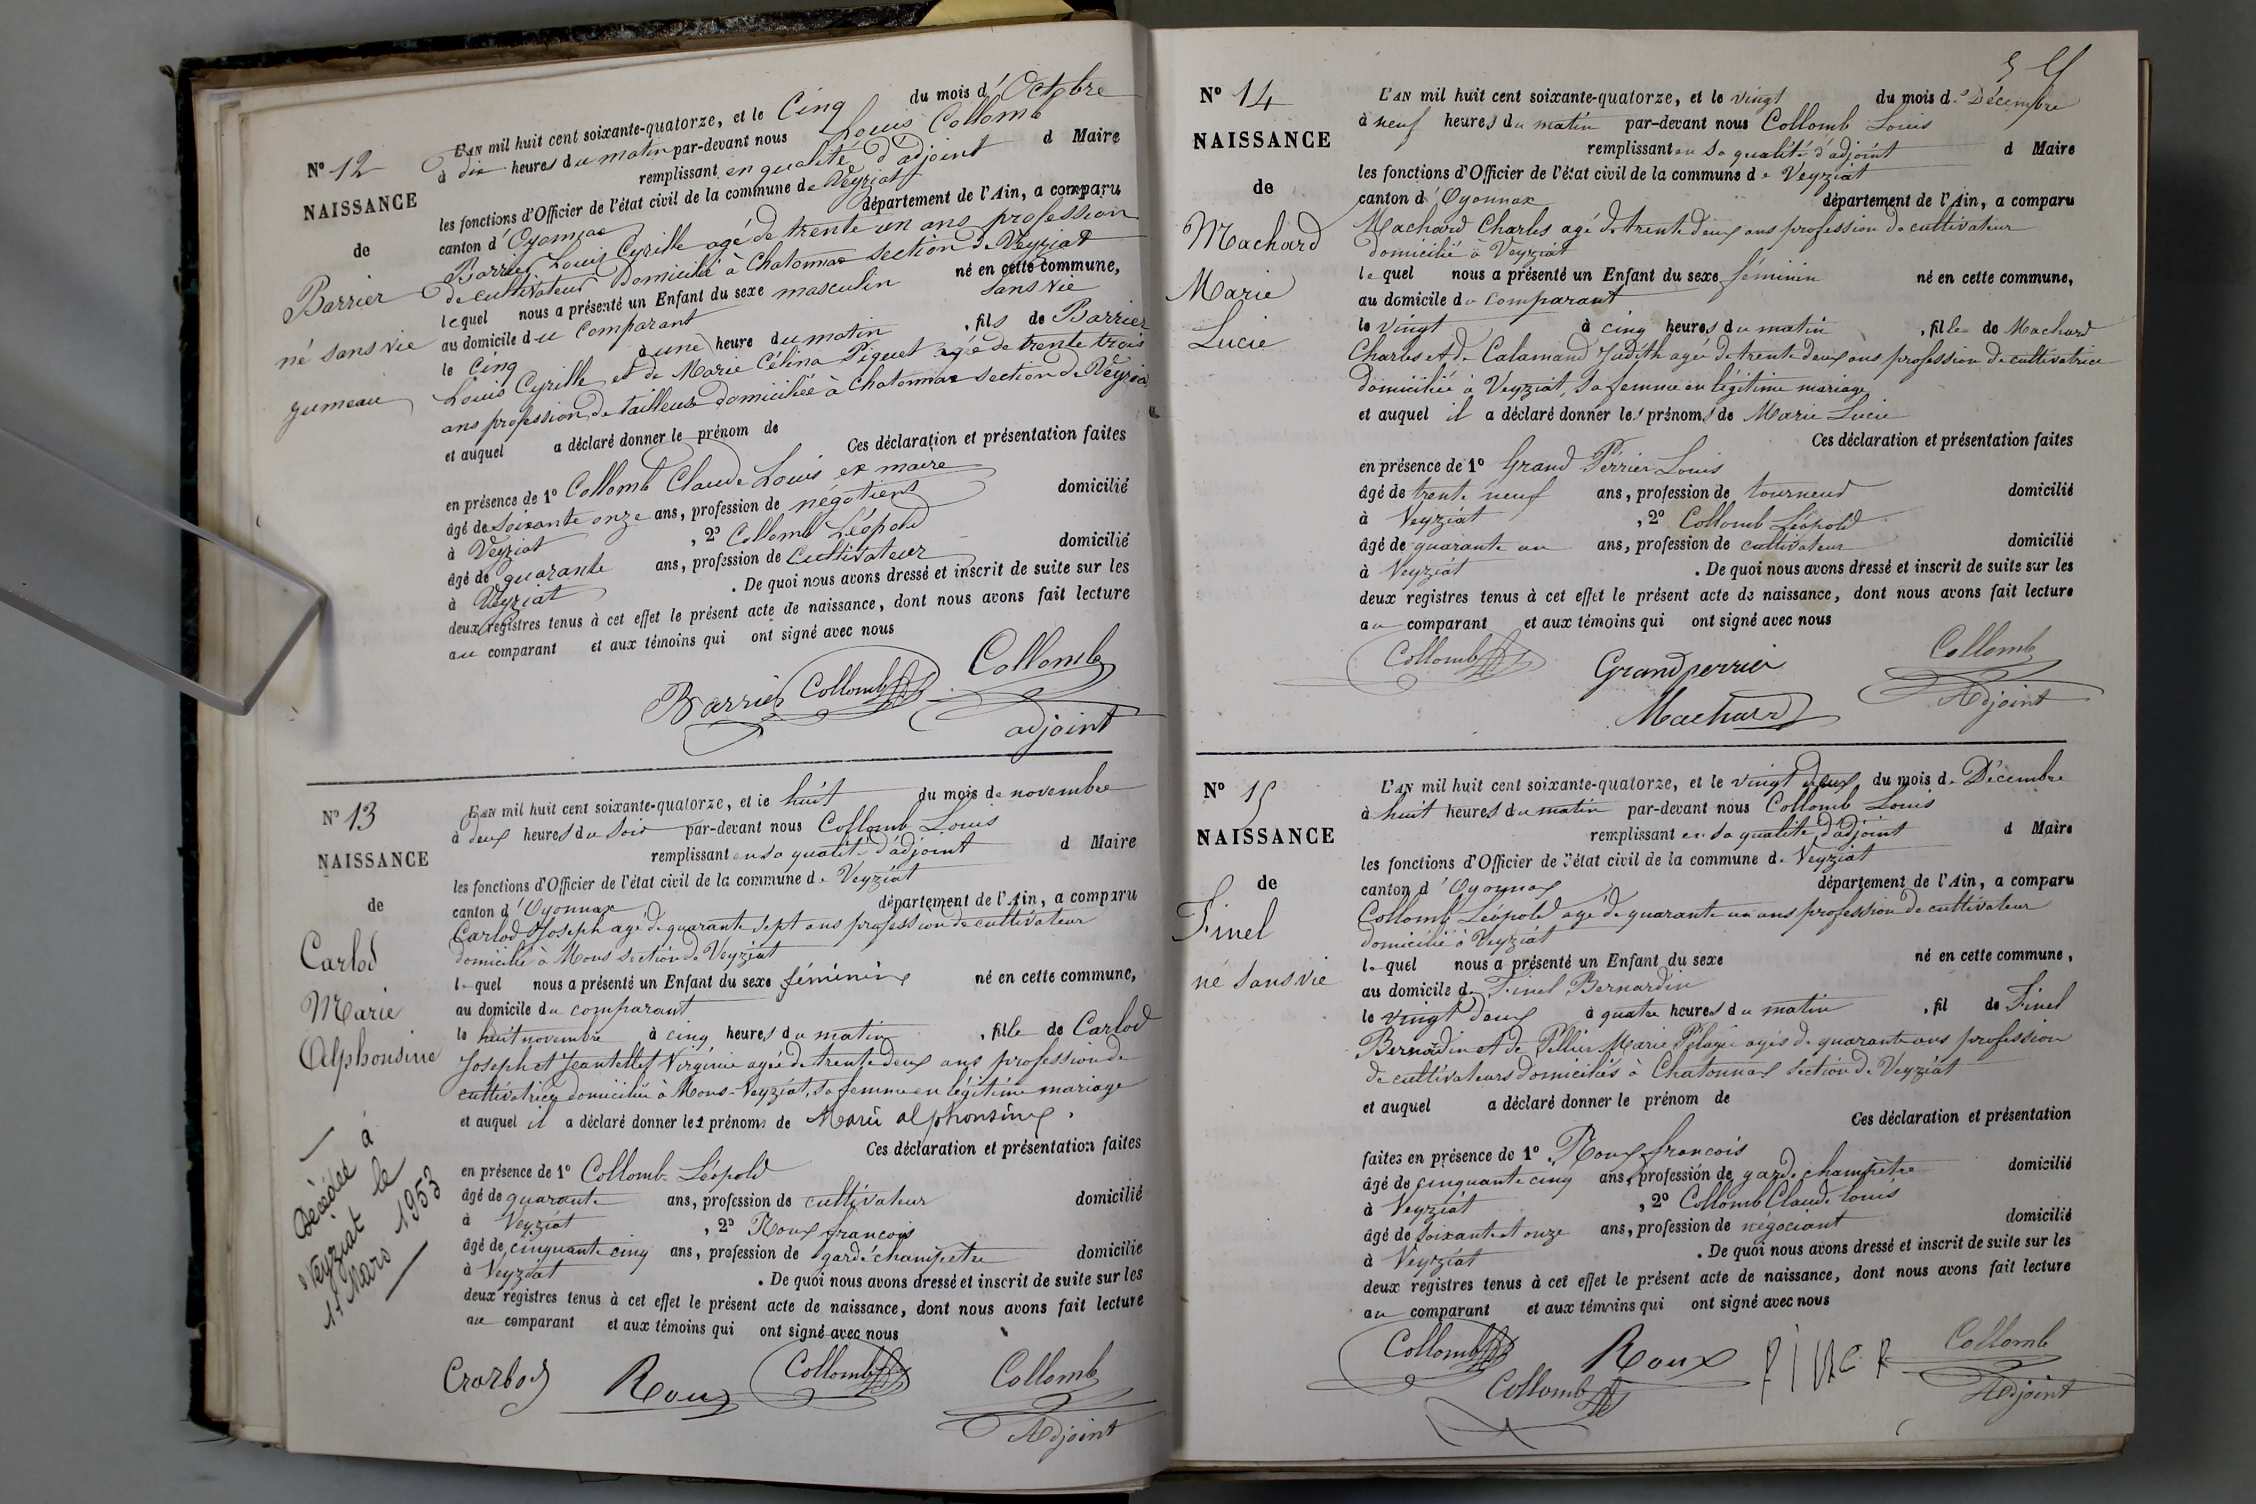 N° 12
NAISSANCE
de
Barrier
né sans vie
jumeau
L'AN mil huit cent soixante-quatorze, et le Cinq du mois d'Octobre
à dix heures du matin par-devant nous Louis Collomb
remplissant en qualité d'adjoint d Maire
les fonctions d'Officier de l'état civil de la commune de Veyziat
canton d'Oyonnax département de l'Ain, a comparu
Barrier Louis Cyrille agé de trente un ans profession
de cultivateur domicilié à Chatonnax section de Veyziat
lequel nous a présenté un Enfant du sexe masculin né en cette commune,
au domicile du comparant sans vie
le Cinq à une heure du matin , fils de Barrier
Louis Cyrille et de Marie Célina Piquet agée de trente trois
ans profession de tailleuse domiciliée à Chatonnax section de Veyziat
et auquel a déclaré donner le prénom de
Ces déclaration et présentation faites
en présence de 1° Collomb Claude Louis ex maire
âgé de soixante onze ans, profession de négotient domicilié
à Veyziat , 2° Collomb Léopold
âgé de quarante ans, profession de Cultivateur domicilié
à Veyziat . De quoi nous avons dressé et inscrit de suite sur les
deux registres tenus à cet effet le présent acte de naissance, dont nous avons fait lecture
au comparant et aux témoins qui ont signé avec nous
Barrier Collomb Collomb
adjoint
N° 13
NAISSANCE
de
Carlod
Marie
Alphonsine
Décédée à
Veyziat le
11 Mars 1953
L'AN mil huit cent soixante-quatorze, et le huit du mois de novembre
à deux heures du soir par-devant nous Collomb Louis
remplissant en sa qualité d'adjoint d Maire
les fonctions d'Officier de l'état civil de la commune de Veyziat
canton d'Oyonnax département de l'Ain, a comparu
Carlod Joseph agé de quarante sept ans profession de cultivateur
domicilié à Mons section de Veyziat
lequel nous a présenté un Enfant du sexe féminin né en cette commune,
au domicile du comparant
le huit novembre à cinq heures du matin , fille de Carlod
Joseph et Jeantellet Virginie agée de trente deux ans profession de
cultivatrice domiciliée à Mons-Veyziat, sa femme en légitime mariage
et auquel il a déclaré donner les prénoms de Marie alphonsine.
Ces déclaration et présentation faites
en présence de 1° Collomb Léopold
âgé de quarante ans, profession de cultivateur domicilié
à Veyziat , 2° Roux francois
âgé de cinquante cinq ans, profession de garde champêtre domicilié
à Veyziat . De quoi nous avons dressé et inscrit de suite sur les
deux registres tenus à cet effet le présent acte de naissance, dont nous avons fait lecture
au comparant et aux témoins qui ont signé avec nous
Carlod Roux Collomb Collomb
Adjoint
N° 14
NAISSANCE
de
Machard
Marie
Lucie
L'AN mil huit cent soixante-quatorze, et le vingt du mois de Décembre
à neuf heures du matin par-devant nous Collomb Louis
remplissant en sa qualité d'adjoint d Maire
les fonctions d'Officier de l'état civil de la commune de Veyziat
canton d'Oyonnax département de l'Ain, a comparu
Machard Charles agé de trente deux ans profession de cultivateur
domicilié à Veyziat
lequel nous a présenté un Enfant du sexe féminin né en cette commune,
au domicile du comparant
le vingt à cinq heures du matin , fille de Machard
Charles et de Calamand Judith agée de trente deux ans profession de cultivatrice
domiciliée à Veyziat, sa femme en légitime mariage
et auquel il a déclaré donner les prénoms de Marie Lucie
Ces déclaration et présentation faites
en présence de 1° Grand Perrier Louis
âgé de trente neuf ans, profession de tourneur domicilié
à Veyziat , 2° Collomb Léopold
âgé de quarante un ans, profession de cultivateur domicilié
à Veyziat . De quoi nous avons dressé et inscrit de suite sur les
deux registres tenus à cet effet le présent acte de naissance, dont nous avons fait lecture
au comparant et aux témoins qui ont signé avec nous
Collomb Grandperrier Collomb
Machard Adjoint
N° 15
NAISSANCE
de
Finel
né sans vie
L'AN mil huit cent soixante-quatorze, et le vingt deux du mois de Décembre
à huit heures du matin par-devant nous Collomb Louis
remplissant en sa qualité d'adjoint d Maire
les fonctions d'Officier de l'état civil de la commune de Veyziat
canton d'Oyonnax département de l'Ain, a comparu
Collomb Léopold agé de quarante un ans profession de cultivateur
domicilié à Veyziat
lequel nous a présenté un Enfant du sexe né en cette commune,
au domicile de Finel Bernardin
le vingt deux à quatre heures du matin , fil de Finel
Bernardin et de Pellier Marie Pélagie agés de quarante ans profession
de cultivateurs domiciliés à Chatonnax section de Veyziat
et auquel a déclaré donner le prénom de
Ces déclaration et présentation
faites en présence de 1° Roux francois
âgé de cinquante cinq ans, profession de garde champêtre domicilié
à Veyziat , 2° Collomb Claude Louis
âgé de soixante et onze ans, profession de négociant domicilié
à Veyziat . De quoi nous avons dressé et inscrit de suite sur les
deux registres tenus à cet effet le présent acte de naissance, dont nous avons fait lecture
au comparant et aux témoins qui ont signé avec nous
Collomb Roux Collomb
Collomb Adjoint